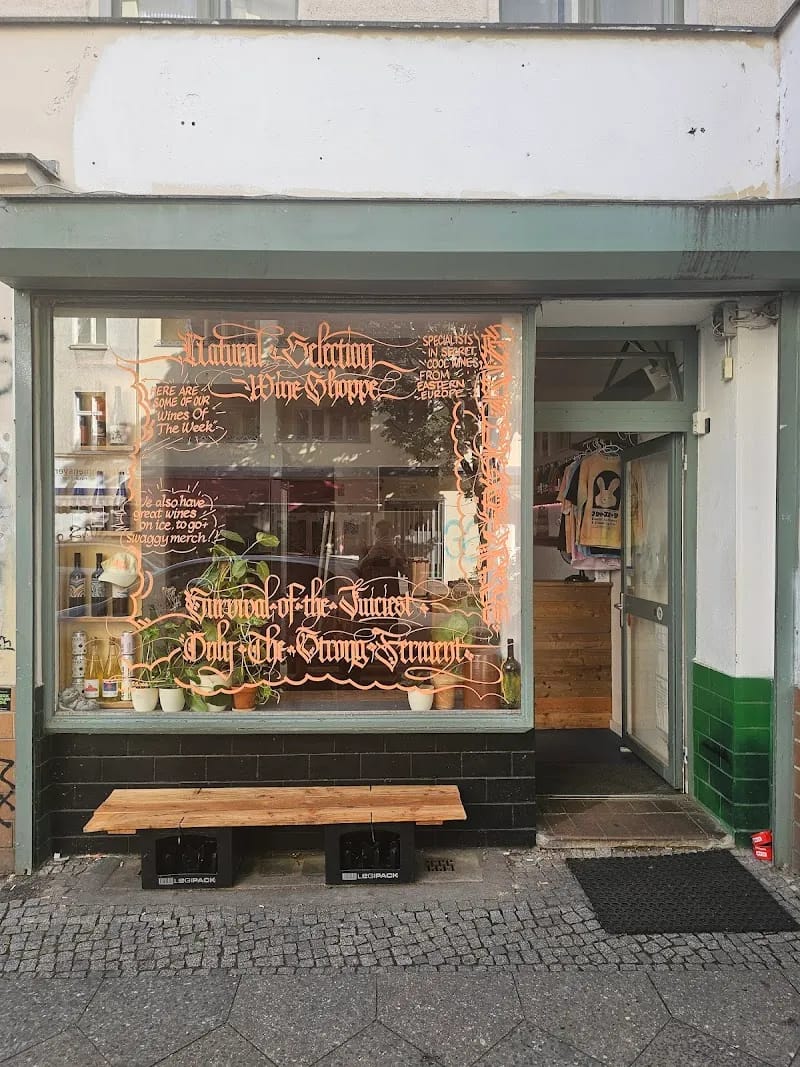 Natural Selection
Wine Shoppe
SPECIALISTS
IN SECRET,
COOL WINES
FROM
EASTERN
EUROPE
HERE ARE
SOME OF OUR
Wines Of
The Week
We also have
great wines
on ice, to go +
swaggy merch!
Survival of the Juiciest
Only The Strong Ferment
LEGIPACK
LEGIPACK